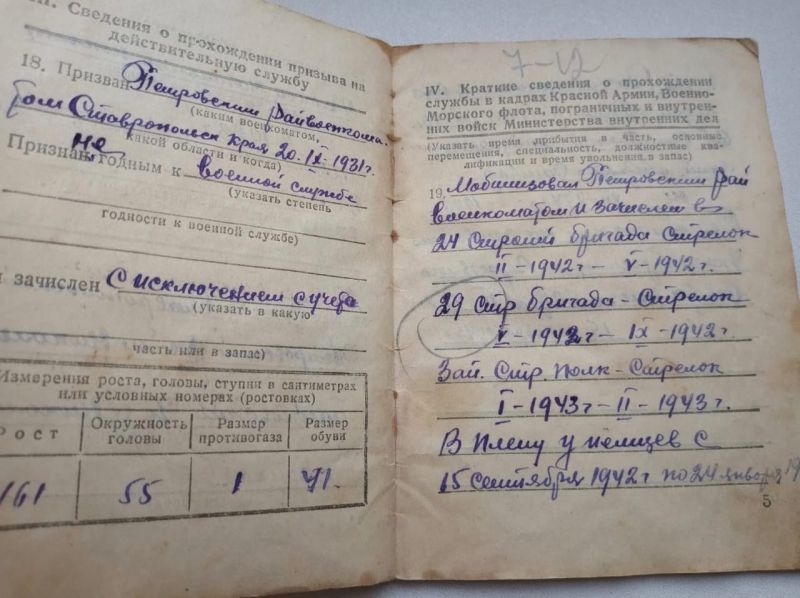 III. Сведения о прохождении призыва на
действительную службу
18. Призван Петровским Райвоенкома-
(каким военкоматом,
том Ставропольск края 20.IX-1931г.
какой области и когда)
Признан не годным к военной службе
(указать степень
годности к военной службе)
и зачислен С исключением с учета
(указать в какую
часть или в запас)
Измерения роста, головы, ступни в сантиметрах
или условных номерах (ростовках)
Рост
Окружность
головы
Размер
противогаза
Размер
обуви
161
55
1
41.
7-12
IV. Краткие сведения о прохождении
службы в кадрах Красной Армии, Военно-
Морского флота, пограничных и внутрен-
них войск Министерства внутренних дел
(Указать время прибытия в часть, основные
перемещения, специальность, должностные ква-
лификации и время увольнения в запас)
19. Мобилизован Петровским Рай
военкоматом и зачислен в
24 бригада Стрелок
II-1942г- V-1942г.
29 Стр бригада-Стрелок
V-1942г- IX-1942г.
Зап. Стр. Полк-Стрелок
I-1943г-II-1943г.
В плену у немцев с
15 сентября 1942г по 24 января 19
5